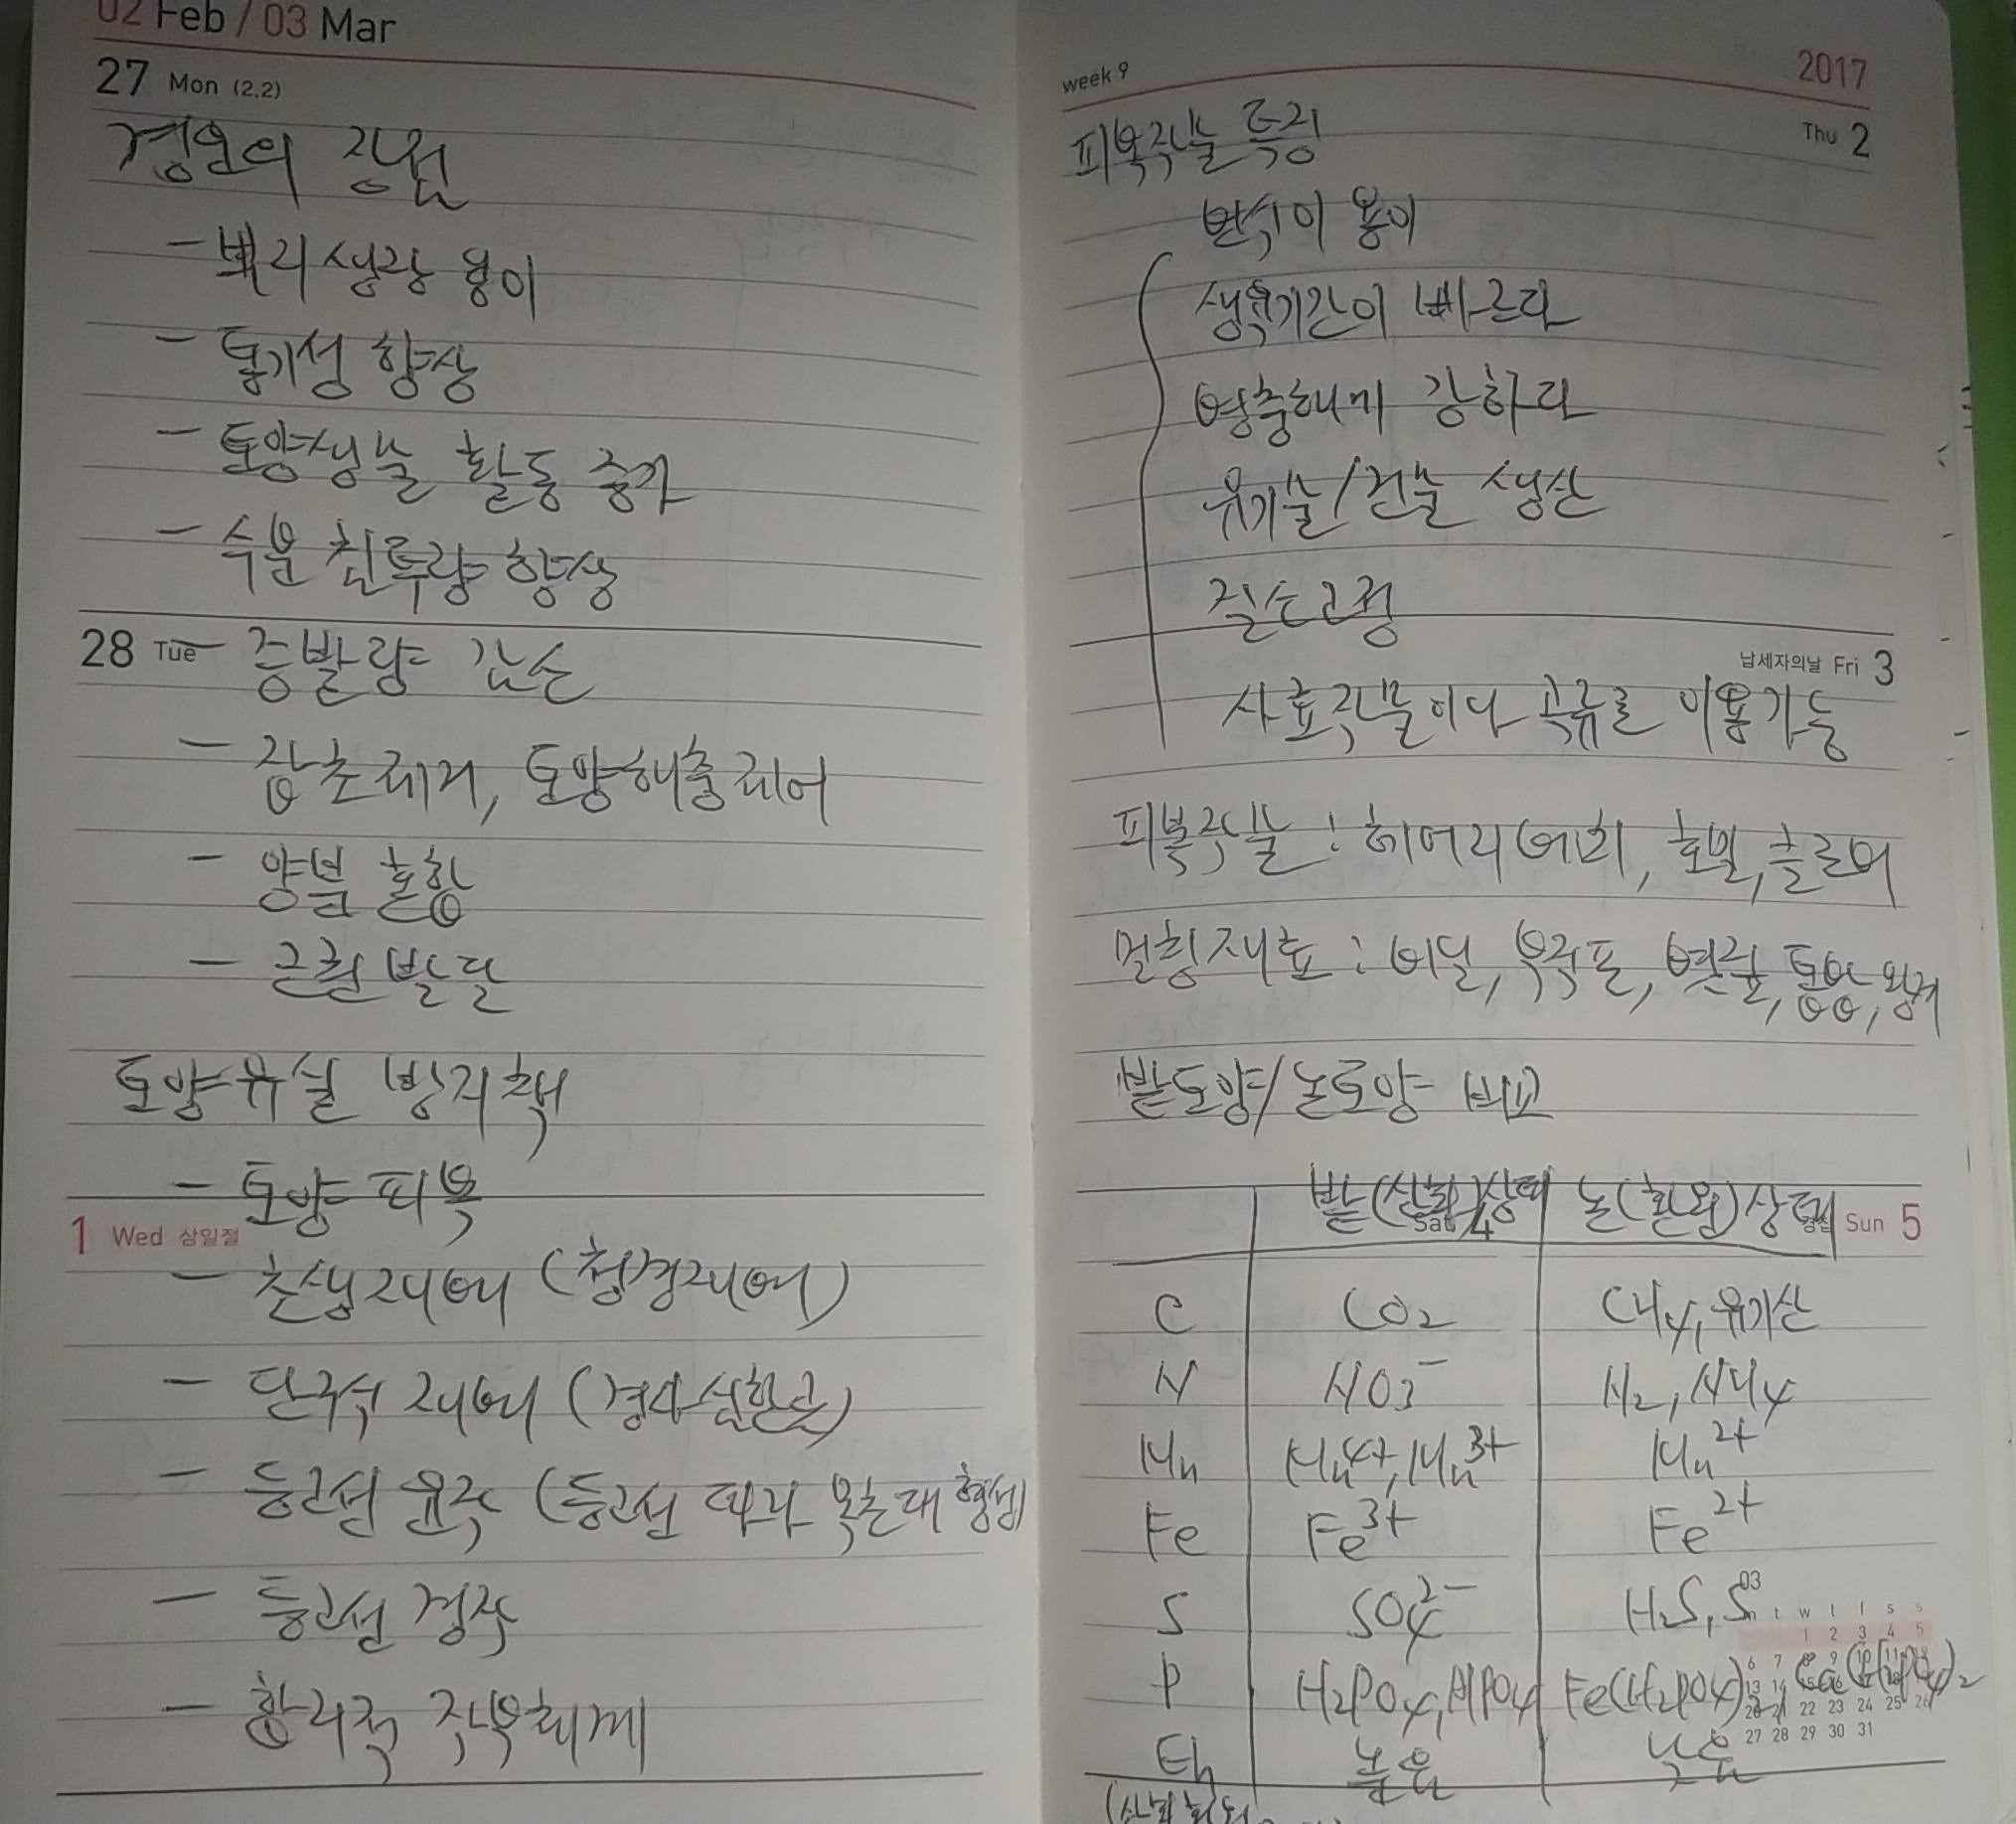 02 Feb / 03 Mar
27 Mon (2.2)
경운의 장점
- 뿌리 생장 용이
- 통기성 향상
- 토양생물 활동 증가
- 수분 침투량 향상
28 Tue
- 증발량 감소
- 잡초제거, 토양해충제어
- 양분 혼합
- 근권 발달
토양유실 방지책
- 토양 피복
1 Wed 삼일절
- 초생재배 (청경재배)
- 단구식 재배 (경사심한곳)
- 등고선 윤작 (등고선 따라 목초대 형성)
- 등고선 경작
- 합리적 작부체계
week 9
2017
Thu 2
피복작물 특징
번식이 용이
생육기간이 빠르다
병충해에 강하다
유기물/건물 생산
질소고정
납세자의날 Fri 3
사료작물이나 곡류로 이용가능
피복작물 : 헤어리베치, 호밀, 클로버
멀칭재료 : 비닐, 부직포, 볏짚, 톱밥, 왕겨
밭토양/논토양 비교
밭(산화)상태 논(환원)상태
Sat 4
Sun 5
C CO2 CH4, 유기산
N NO3- N2, NH4
Mn Mn4+, Mn3+ Mn2+
Fe Fe3+ Fe2+
S SO42- H2S, S
03
t w t f s s
1 2 3 4 5
P H2PO4, AlPO4 Fe(H2PO4)2, Ca(H2PO4)2
22 23 24 25 26
27 28 29 30 31
Eh 높음 낮음